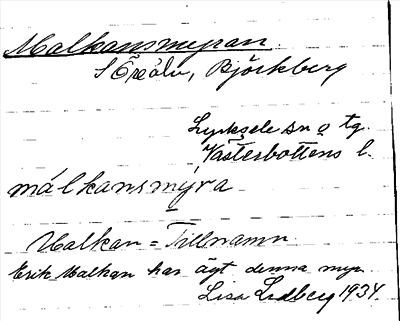 Malkansmyran
S Öreälv, Björkberg
Lycksele sn o tg.
Västerbottens l.
målkansmýra
Malkan = Tillnamn.
Erik Malkan har ägt denna myr.
Lisa Lidberg 1934.